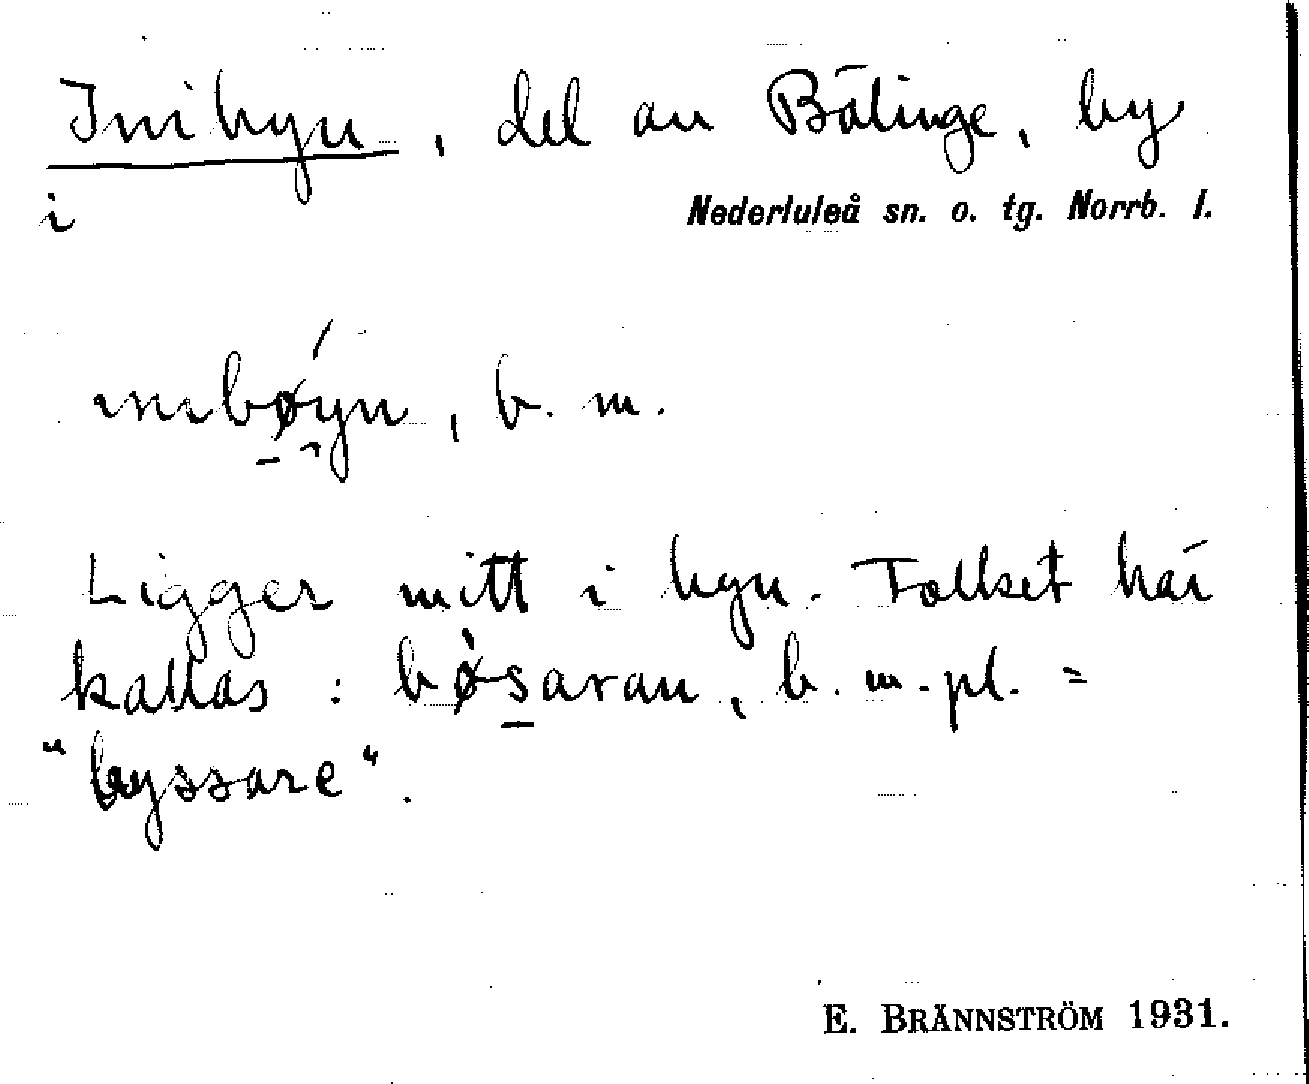 Inibyn, del av Bälinge, by
i Nederluleå sn. o. tg. Norrb. l.
inibøyn, b. m.
Ligger mitt i byn. Folket här
kallas: bøsaran, b. m. pl. =
"byssare".
E. BRÄNNSTRÖM 1931.